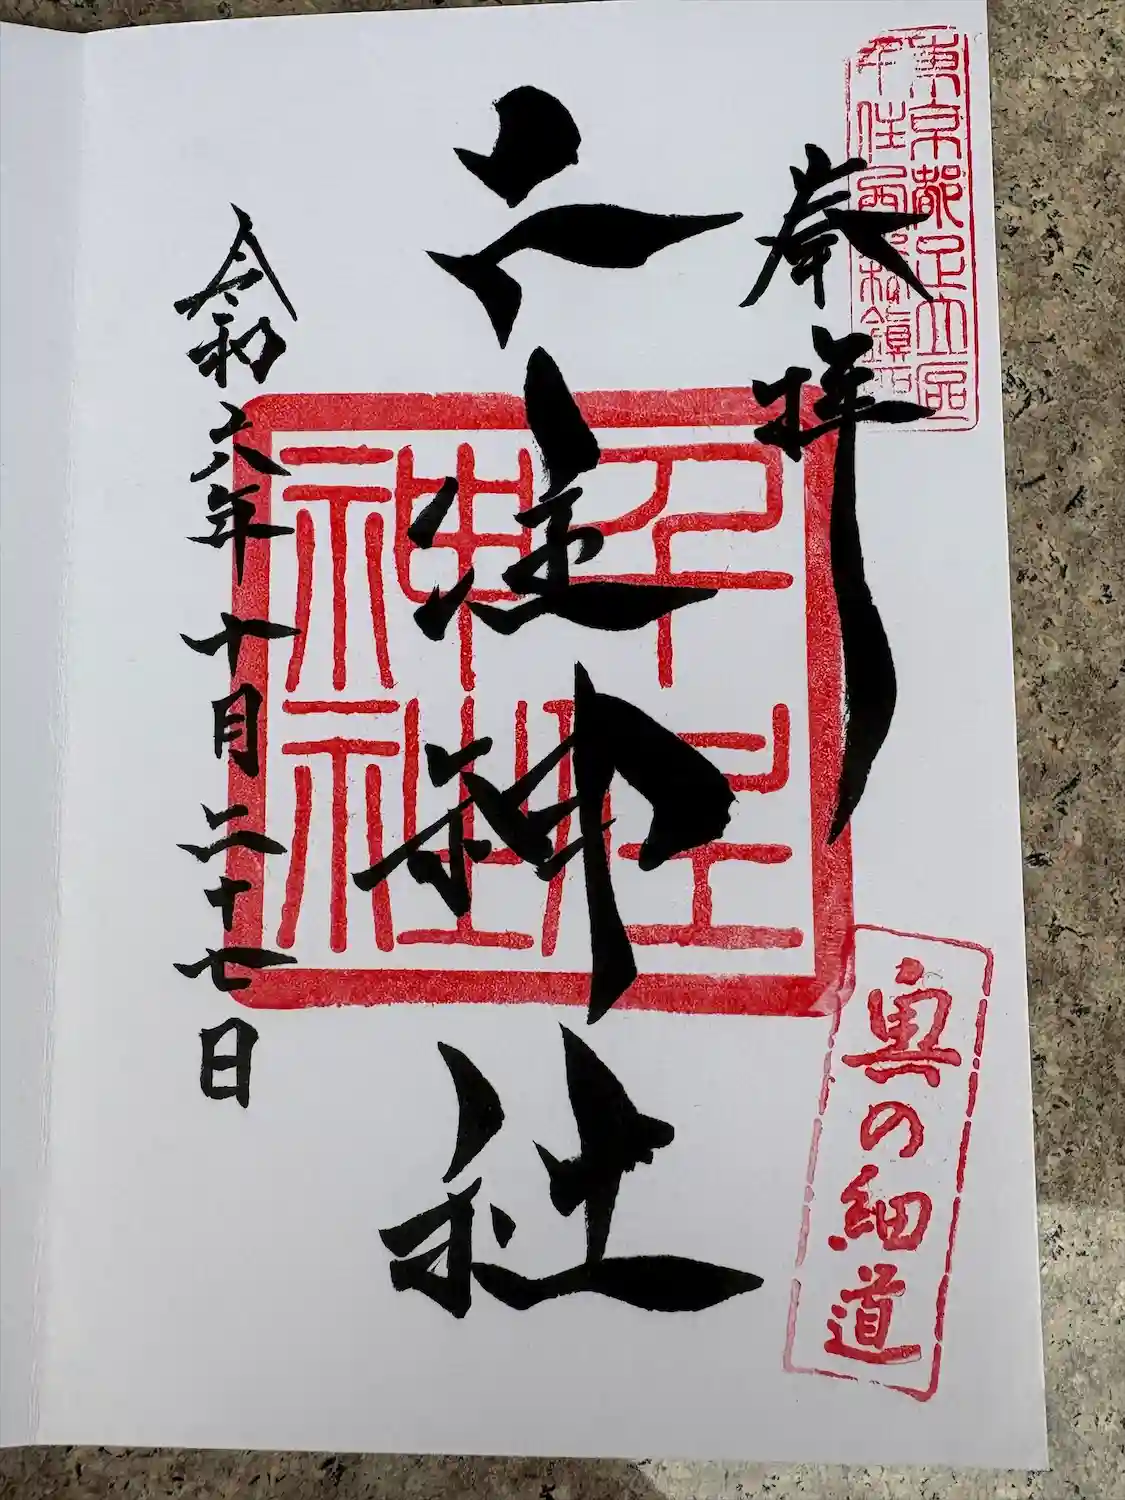 東京都足立区
千住西森鎮
奉拝
千住神社
千住
神社
令和六年十月二十七日
奥の細道